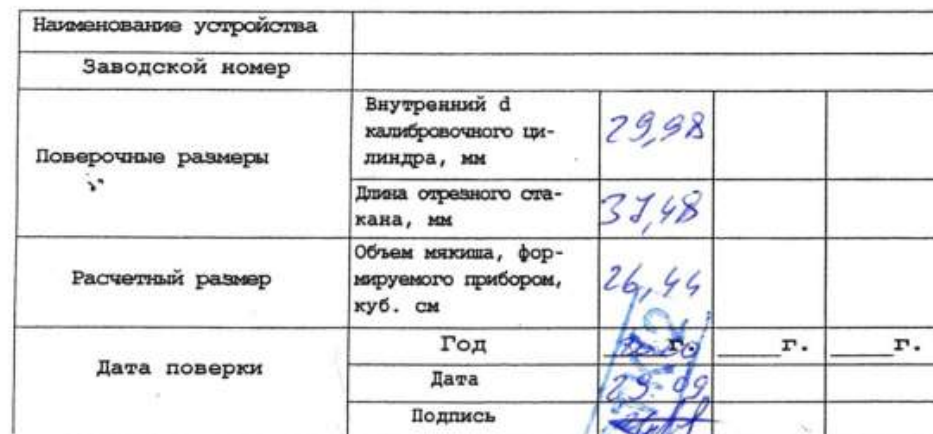 Наименование устройства
Заводской номер
Поверочные размеры
Внутренний d
калибровочного ци-
линдра, мм
29,98
Длина отрезного ста-
кана, мм
37,48
Расчетный размер
Объем мякиша, фор-
мируемого прибором,
куб. см
26,44
Дата поверки
Год
г. ____г. ____г.
Дата
29.09
Подпись